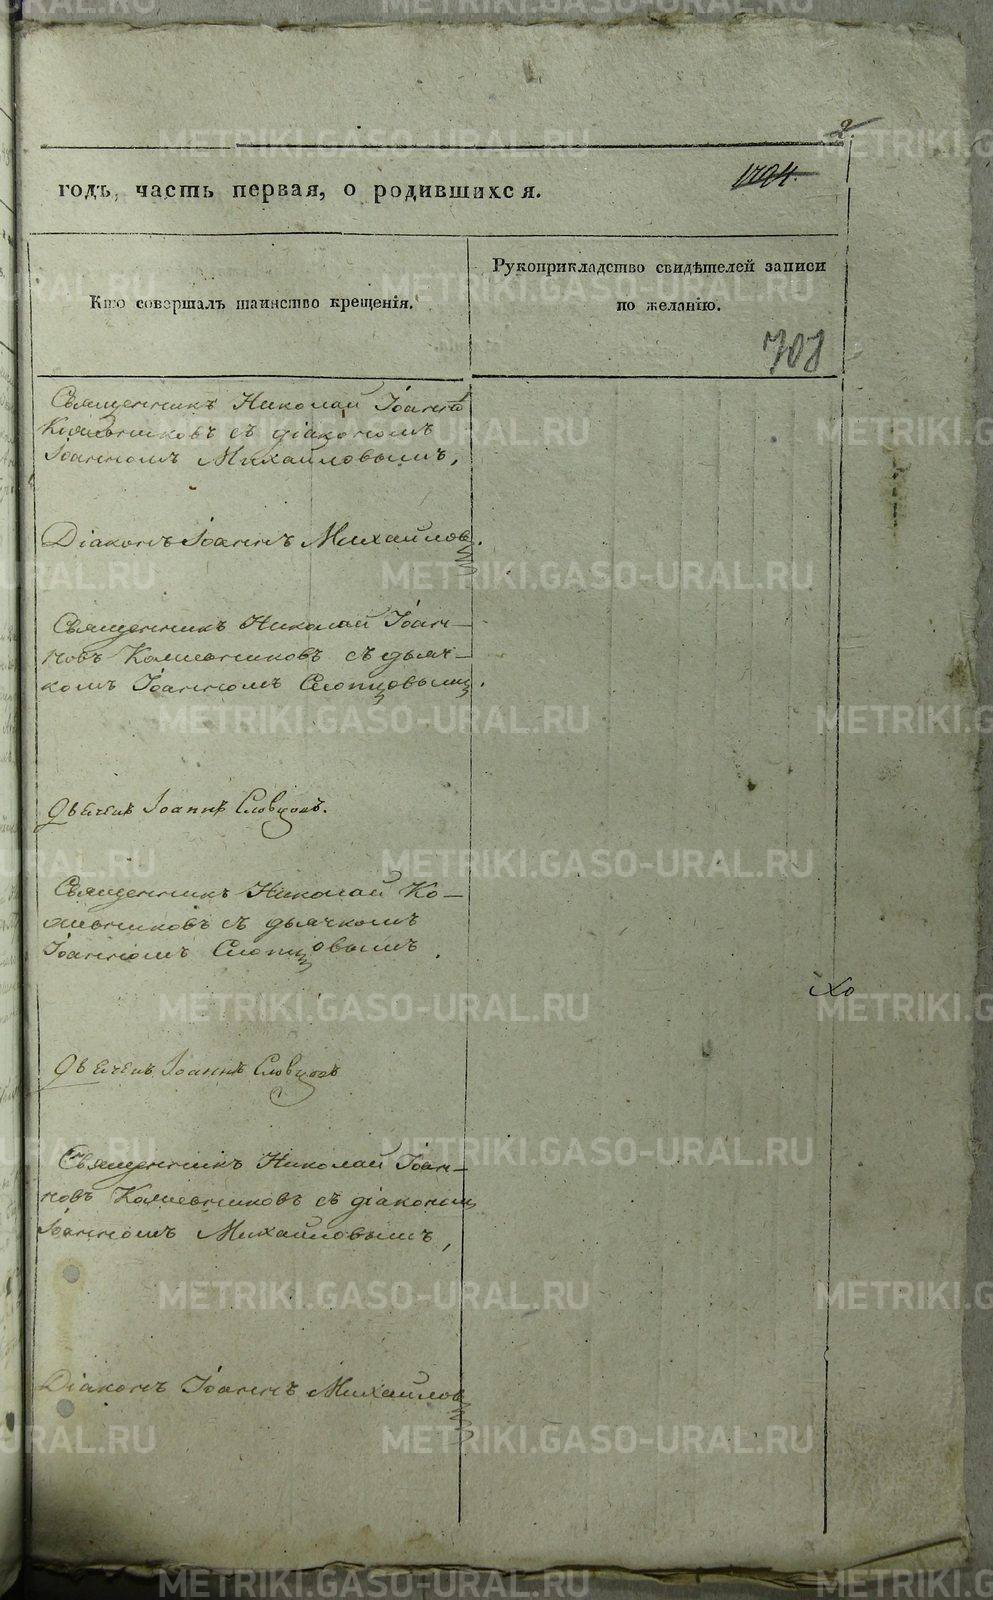 2.
годъ, часть первая, о родившихся.
1794.
Кто совершалъ таинство крещенія.
Рукоприкладство свидѣтелей записи
по желанію.
708
Священникъ Николай Іоанно
съ діакономъ
Іоанномъ Михайловымъ,
Діаконъ Іоаннъ Михайлов.
Священникъ Николай Іоан–
новъ съ дьяч–
комъ Іоанномъ Словцовымъ.
Дьячекъ Іоаннъ Словцовъ.
Священникъ Николай Ко–
съ дьячкомъ
Іоанномъ Словцовымъ.
Дьячекъ Іоаннъ Словцовъ
Священникъ Николай Іоан–
новъ съ діакономъ
Іоанномъ Михайловымъ,
Діаконъ Іоаннъ Михайлов
METRIKI.GASO-URAL.RU